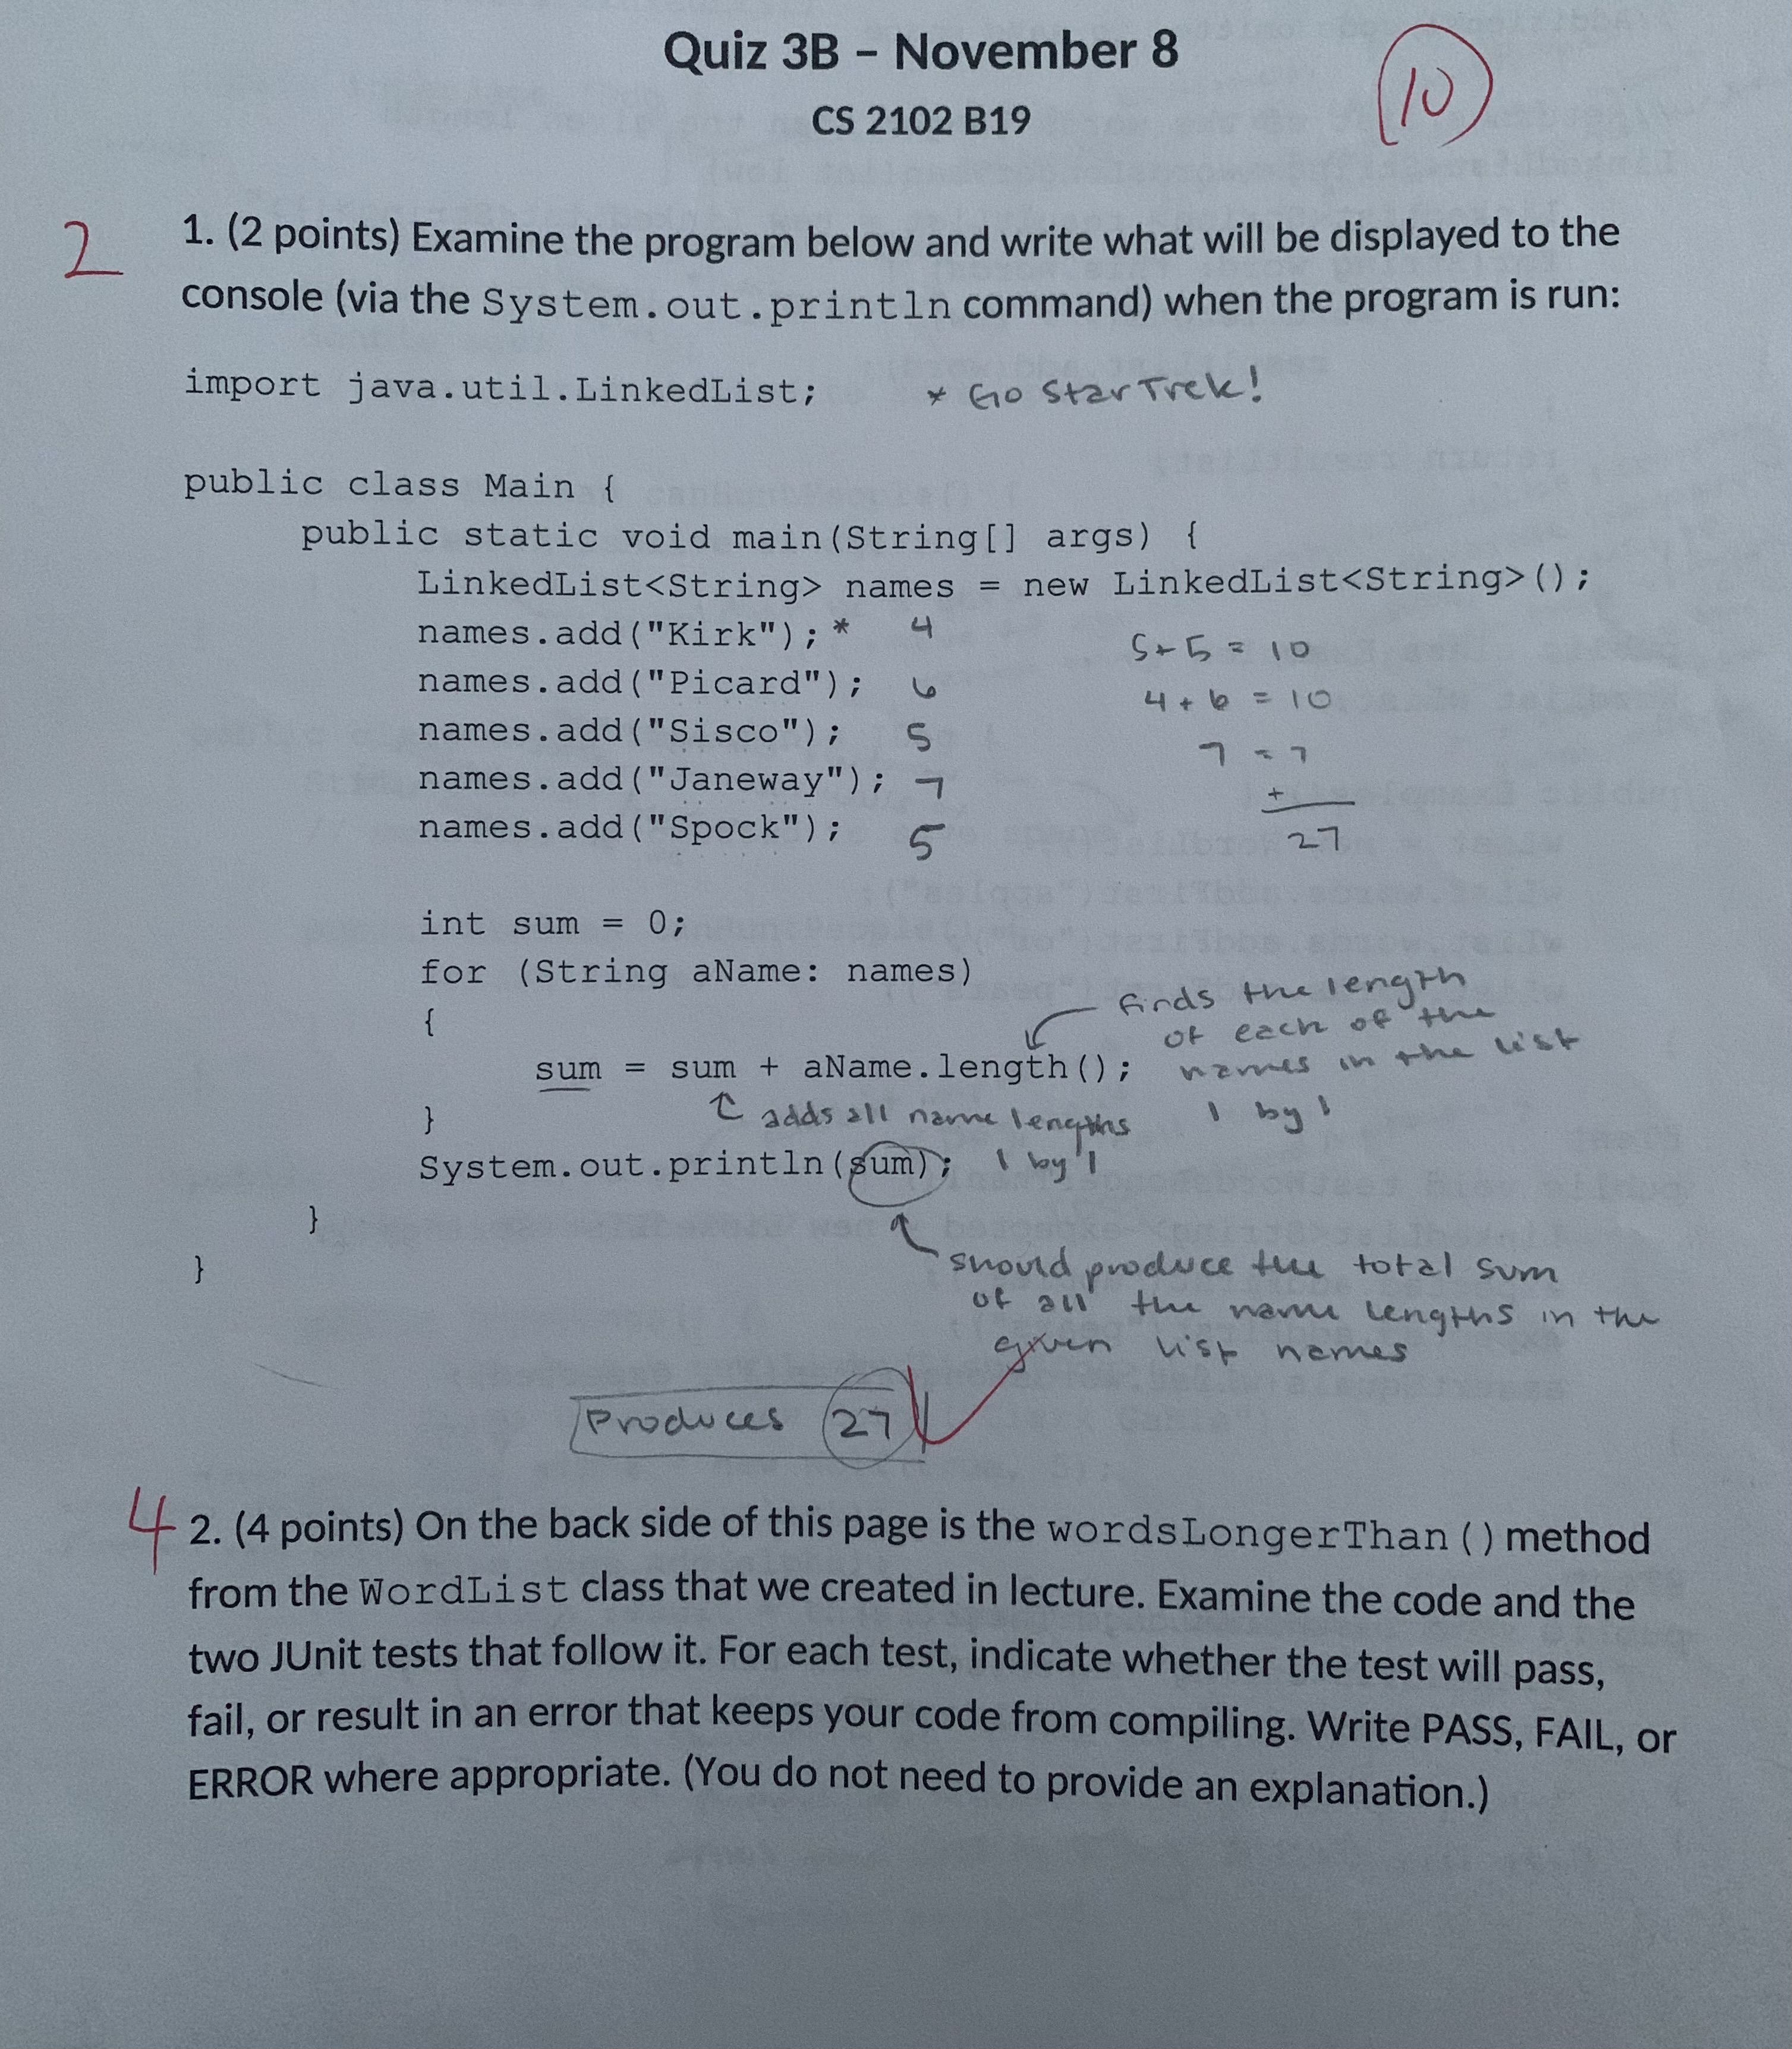 Quiz 3B – November 8
10
CS 2102 B19
2
1. (2 points) Examine the program below and write what will be displayed to the
console (via the System.out.println command) when the program is run:
import java.util.LinkedList; * Go Star Trek!
public class Main {
public static void main(String[] args) {
LinkedList<String> names = new LinkedList<String>();
names.add("Kirk"); * 4
names.add("Picard"); 6
names.add("Sisco"); 5
names.add("Janeway"); 7
names.add("Spock"); 5
5+5 = 10
4+6 = 10
7 = 7
+
27
int sum = 0;
for (String aName: names)
{
sum = sum + aName.length();
finds the length
of each of the
names in the list
1 by 1
}
adds all name lengths
1 by 1
System.out.println(sum);
}
}
should produce the total sum
of all the name lengths in the
given list names
Produces 27
4
2. (4 points) On the back side of this page is the wordsLongerThan() method
from the WordList class that we created in lecture. Examine the code and the
two JUnit tests that follow it. For each test, indicate whether the test will pass,
fail, or result in an error that keeps your code from compiling. Write PASS, FAIL, or
ERROR where appropriate. (You do not need to provide an explanation.)